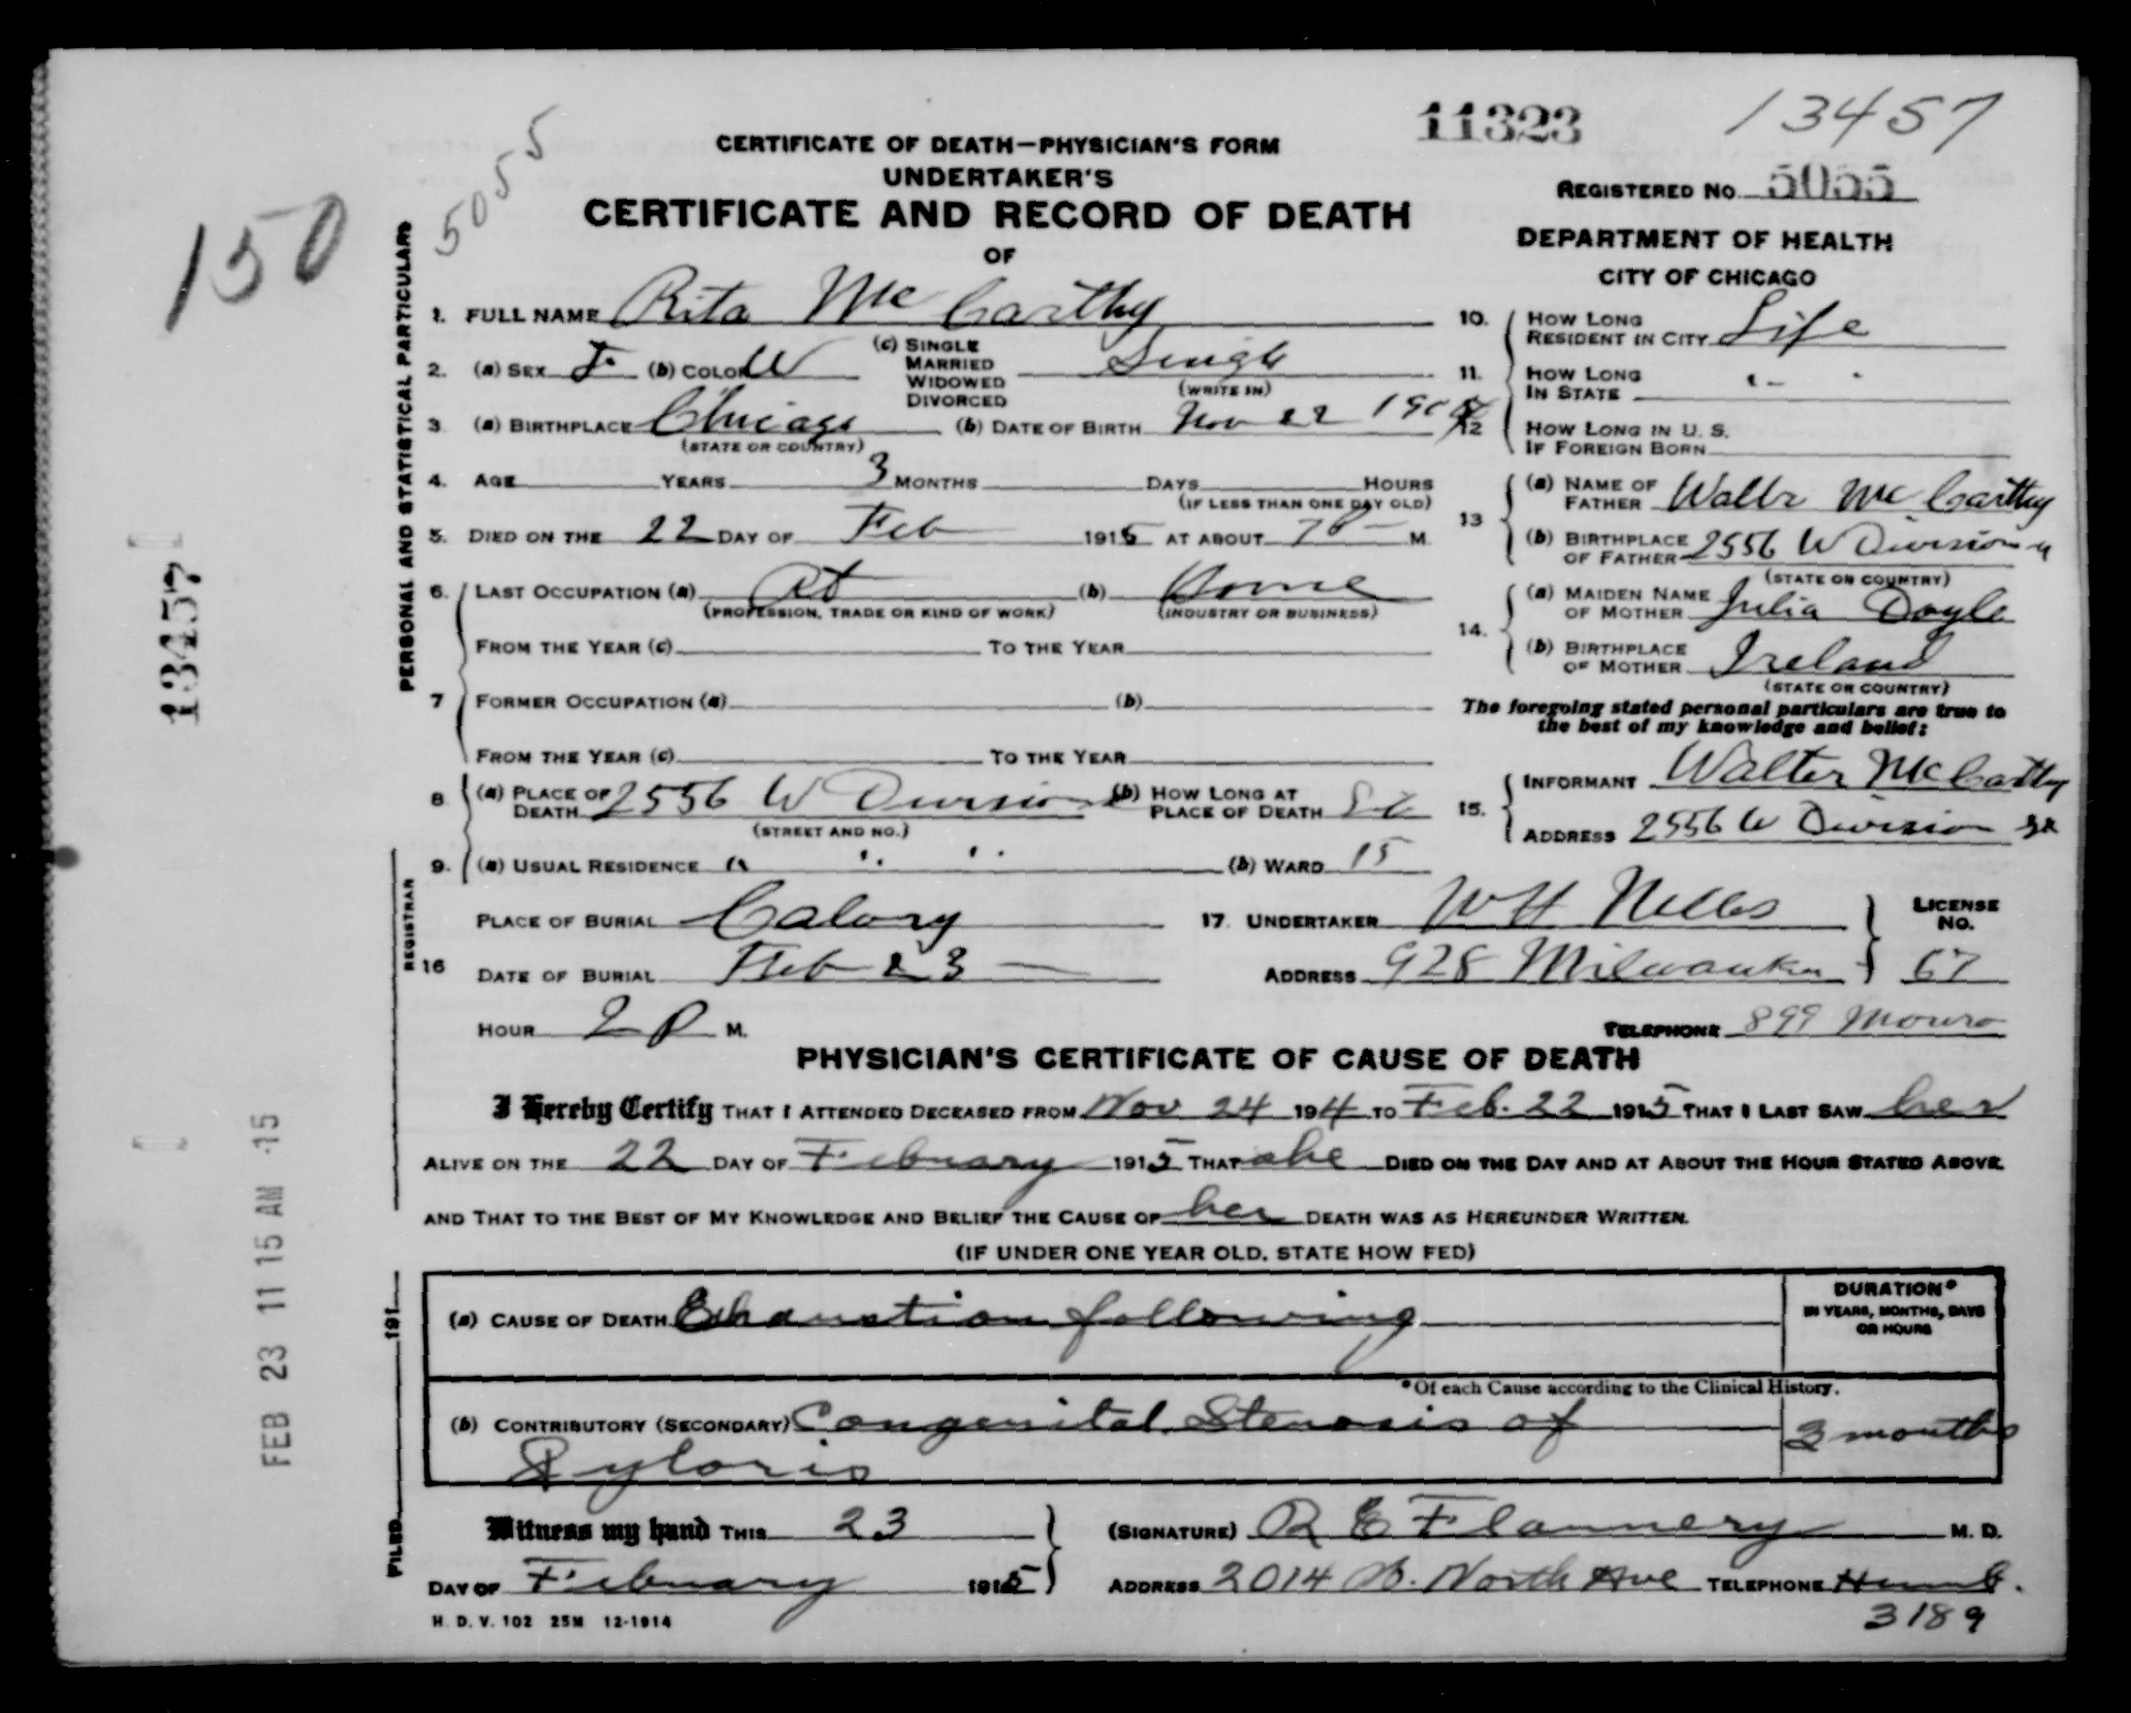 11323
13457
5055
150
CERTIFICATE OF DEATH—PHYSICIAN'S FORM
UNDERTAKER'S
CERTIFICATE AND RECORD OF DEATH
OF
REGISTERED NO. 5055
DEPARTMENT OF HEALTH
CITY OF CHICAGO
PERSONAL AND STATISTICAL PARTICULARS
1. FULL NAME Rita McCarthy
2. (a) SEX F. (b) COLOR W (c) SINGLE MARRIED WIDOWED DIVORCED Single
(WRITE IN)
3 (a) BIRTHPLACE Chicago (b) DATE OF BIRTH Nov 22
(STATE OR COUNTRY)
4. AGE YEARS 3 MONTHS DAYS HOURS
(IF LESS THAN ONE DAY OLD)
5. DIED ON THE 22 DAY OF Feb 1915 AT ABOUT M.
6. LAST OCCUPATION (a) At (b) Home
(PROFESSION, TRADE OR KIND OF WORK) (INDUSTRY OR BUSINESS)
FROM THE YEAR (c) TO THE YEAR
7 FORMER OCCUPATION (a) (b)
FROM THE YEAR (c) TO THE YEAR
8 (a) PLACE OF DEATH 2556 W Division (b) HOW LONG AT PLACE OF DEATH
(STREET AND NO.)
9. (a) USUAL RESIDENCE " " " (b) WARD 15
10. HOW LONG RESIDENT IN CITY Life
11. HOW LONG IN STATE " - "
12 HOW LONG IN U. S. IF FOREIGN BORN
13 (a) NAME OF FATHER Walter McCarthy
(b) BIRTHPLACE OF FATHER 2556 W Division
(STATE OR COUNTRY)
14. (a) MAIDEN NAME OF MOTHER Julia Doyle
(b) BIRTHPLACE OF MOTHER Ireland
(STATE OR COUNTRY)
The foregoing stated personal particulars are true to
the best of my knowledge and belief:
15. INFORMANT Walter McCarthy
ADDRESS 2556 W Division St
REGISTRAR
16 PLACE OF BURIAL Calvary
DATE OF BURIAL Feb 23
HOUR 2 P M.
17. UNDERTAKER W H Nelles LICENSE NO.
ADDRESS 928 Milwaukee 67
TELEPHONE 899 Monroe
PHYSICIAN'S CERTIFICATE OF CAUSE OF DEATH
I Hereby Certify THAT I ATTENDED DECEASED FROM Nov 24 1914 TO Feb. 22 1915 THAT I LAST SAW her
ALIVE ON THE 22 DAY OF February 1915 THAT she DIED ON THE DAY AND AT ABOUT THE HOUR STATED ABOVE
AND THAT TO THE BEST OF MY KNOWLEDGE AND BELIEF THE CAUSE OF her DEATH WAS AS HEREUNDER WRITTEN.
(IF UNDER ONE YEAR OLD, STATE HOW FED)
(a) CAUSE OF DEATH Exhaustion following
DURATION*
IN YEARS, MONTHS, DAYS
OR HOURS
*Of each Cause according to the Clinical History.
(b) CONTRIBUTORY (SECONDARY) Congenital Stenosis of 3 months
Pyloris
Witness my hand THIS 23
DAY OF February 1915
(SIGNATURE) R E Flannery M. D.
ADDRESS 2014 W. North Ave TELEPHONE Humb.
3189
H. D. V. 102 25M 12-1914
FILED 191
13457
FEB 23 11 15 AM '15